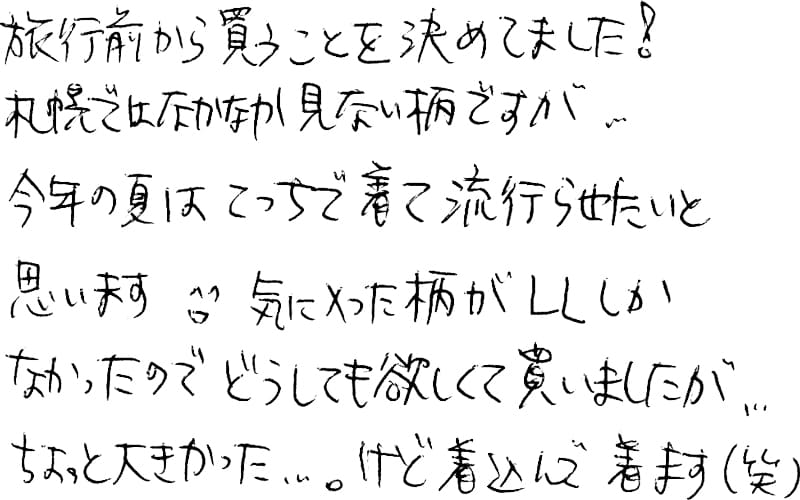 旅行前から買うことを決めてました!
札幌ではなかなか見ない柄ですが…
今年の夏はこっちで着て流行らせたいと
思います ^o^ 気に入った柄がLLしか
なかったのでどうしても欲しくて買いましたが…
ちょっと大きかった…。けど着込んで着ます(笑)